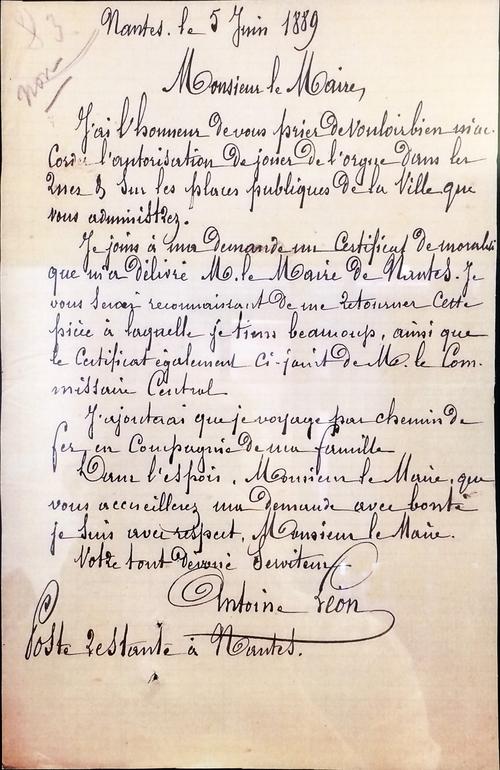 83
non
Nantes. le 5 Juin 1889
Monsieur le Maire,
J'ai l'honneur de vous prier de vouloir bien m'ac-
corder l'autorisation de jouer de l'orgue dans les
rues & sur les places publiques de la Ville que
vous administrez.
Je joins à ma demande un certificat de moralité
que m'a délivré M. le Maire de Nantes. Je
vous serai reconnaissant de me retourner cette
pièce à laquelle je tiens beaucoup, ainsi que
le certificat également ci-joint de M. le Com-
missaire Central
J'ajouterai que je voyage par chemin de
fer, en compagnie de ma famille
Dans l'espoir, Monsieur le Maire, que
vous accueillerez ma demande avec bonté
je suis avec respect, Monsieur le Maire.
Votre tout dévoué Serviteur
Antoine Léon
Poste restante à Nantes.